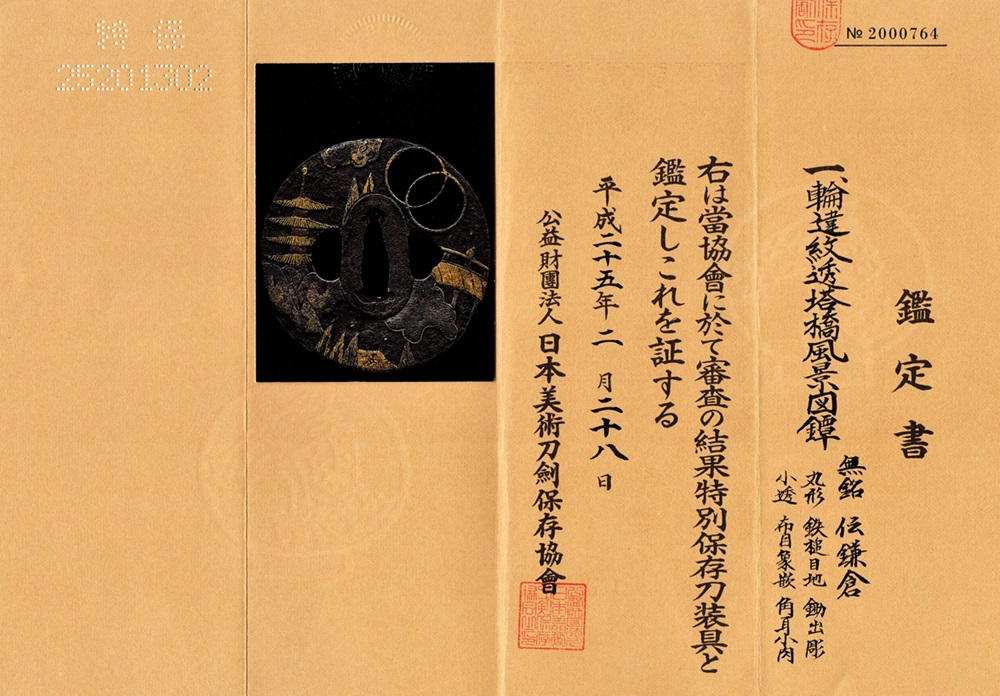 № 2000764
鑑定書
一、輪違紋透塔橋風景図鐔
無銘 伝鎌倉
丸形 鉄槌目地 鋤出彫
小透 布目象嵌 角耳小肉
右は當協會に於て審査の結果特別保存刀装具と
鑑定しこれを証する
平成二十五年二月二十八日
公益財團法人日本美術刀劍保存協會
25201302